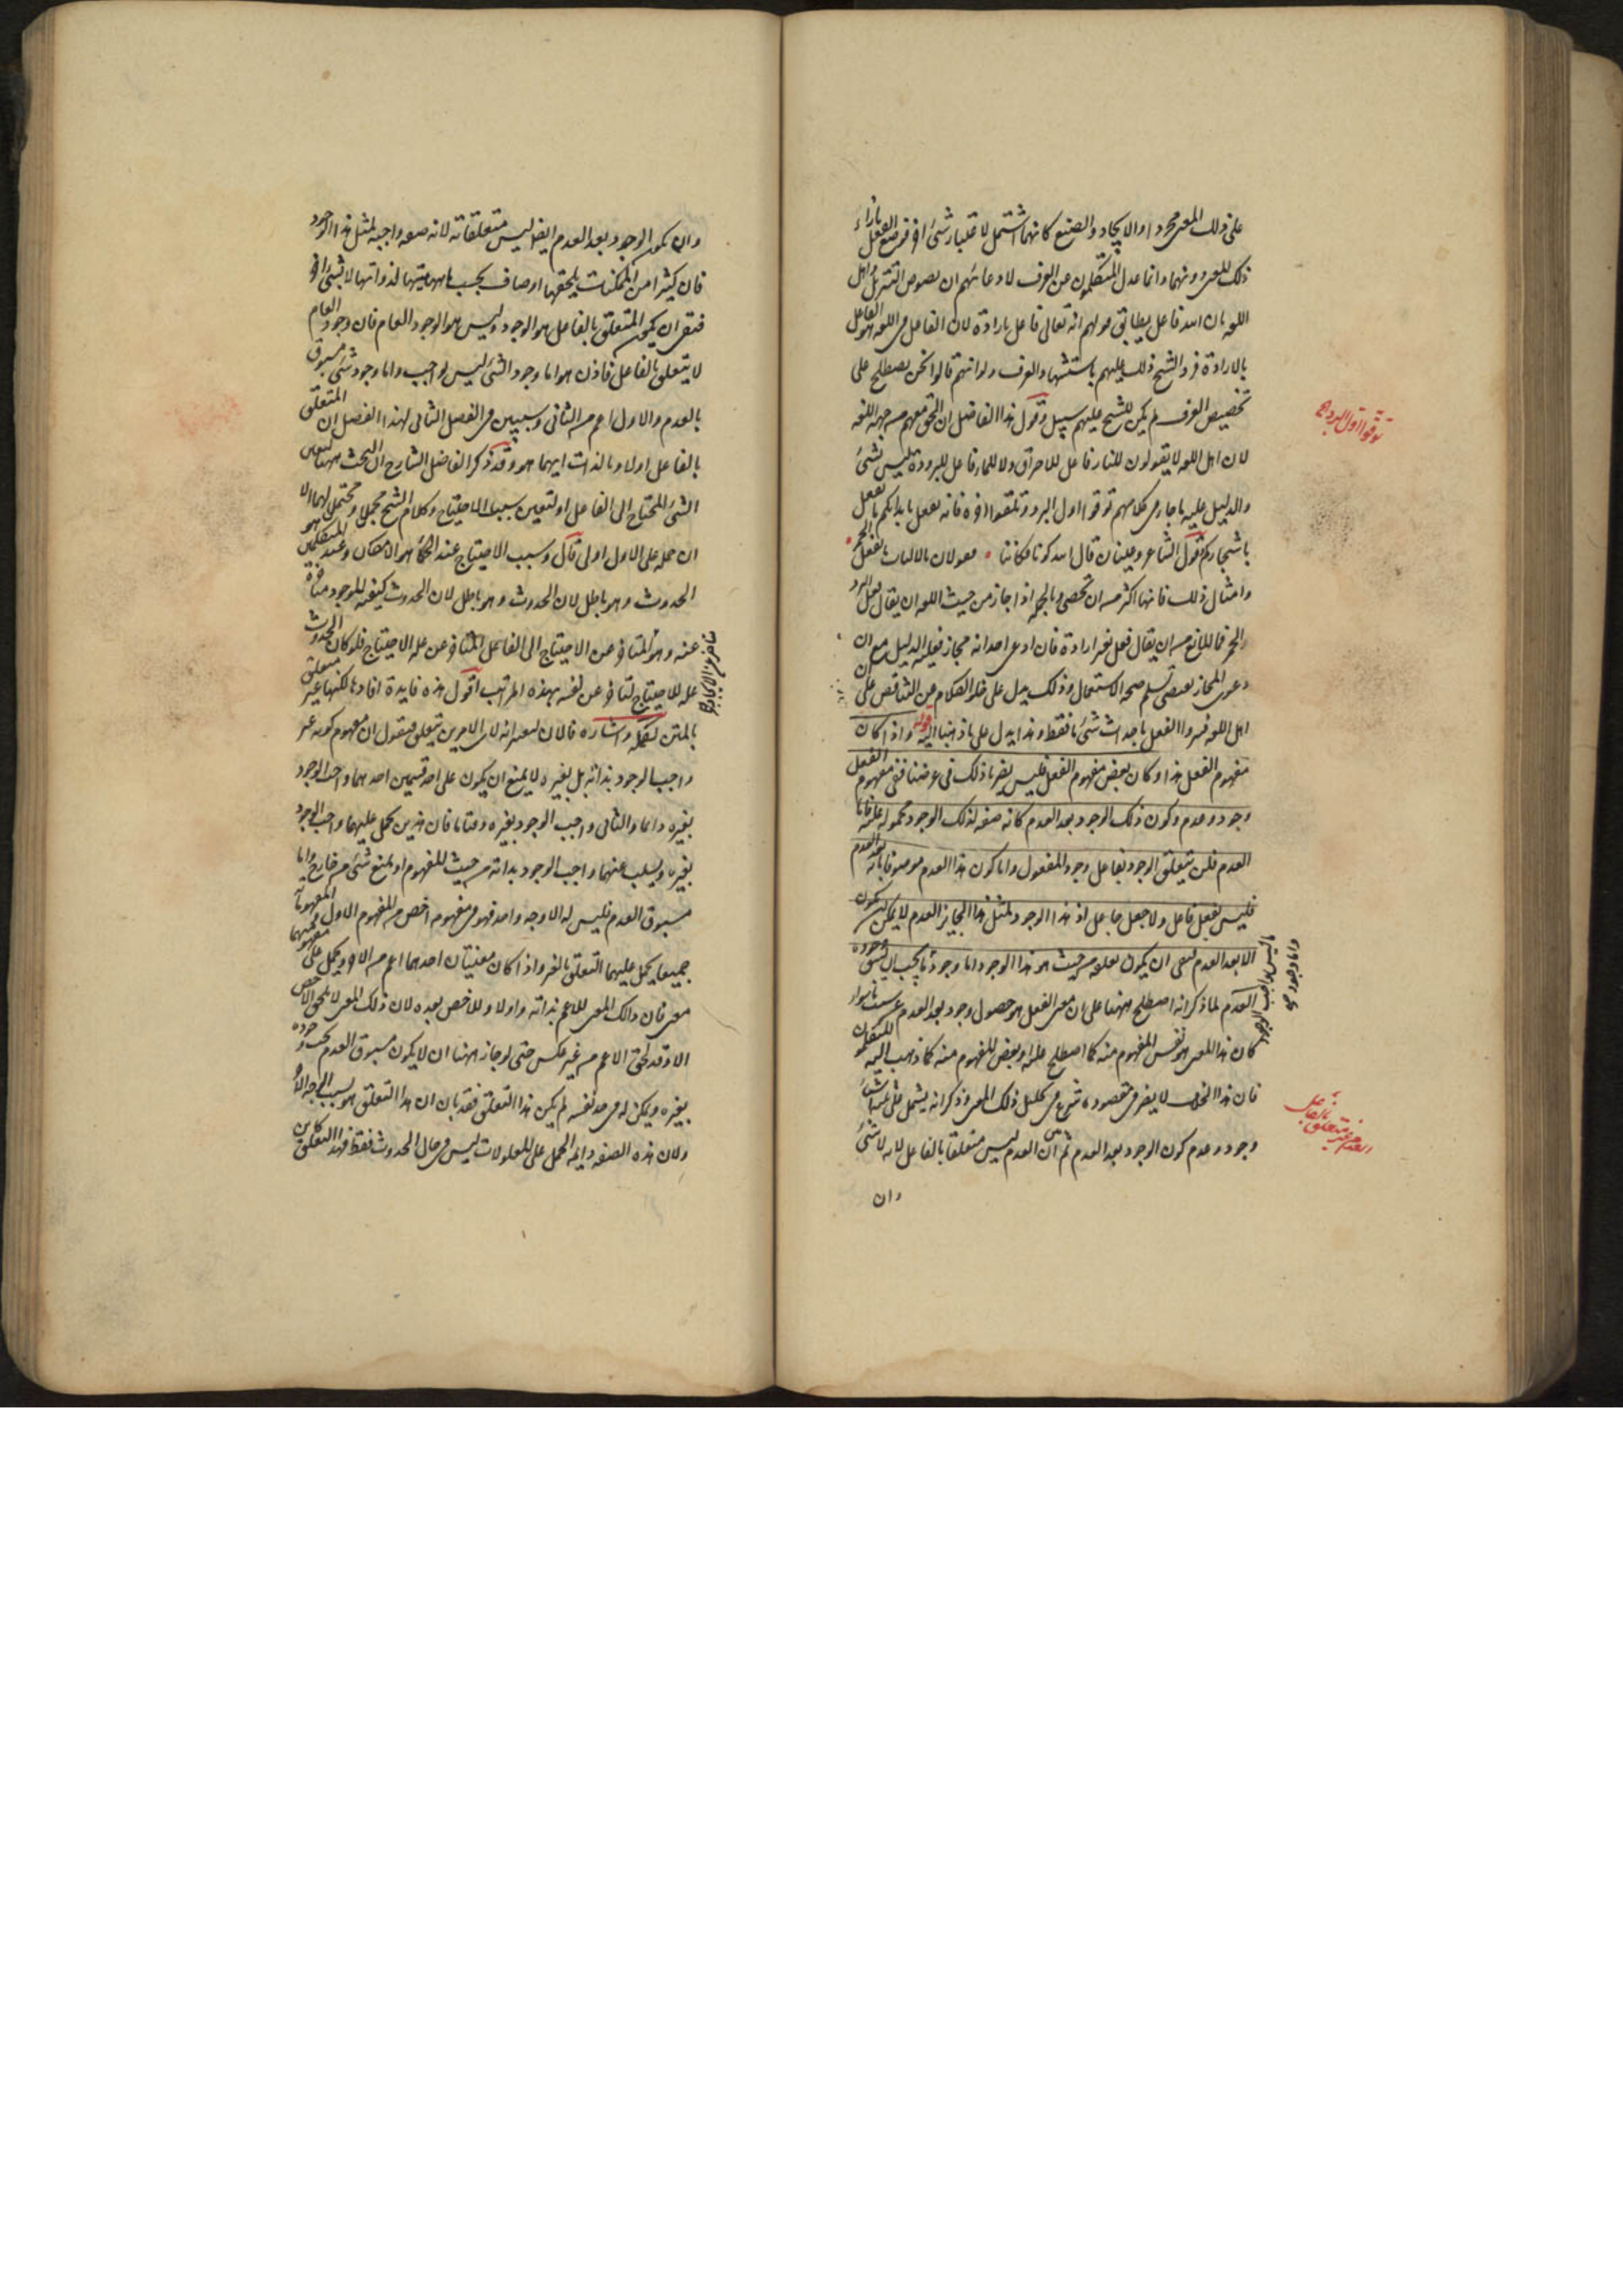 على ذلك المعنى مجردا والايجاد والصنع كانهما اشتمل لاعتبار شئ اخر فوضع الفعل بازاء
ذلك المعنى دونهما وانما عدل المتكلمون عن العرف لادعائهم ان نصوص التنزيل واهل
اللغه بان الله فاعل يطابق قولهم انه تعالى فاعل بارادة لان الفاعل فى اللغه هو الفاعل
بالارادة فرد الشيخ ذلك عليهم باستشهاد العرف ولو انهم قالوا نحن نصطلح على
تخصيص العرف لم يكن للشيخ عليهم سبيل وقول هذا الفاضل ان الحق معهم من جهه اللغه
لان اهل اللغه لا يقولون للنار فاعل للاحراق ولا للماء فاعل للبرودة ليس بشئ
والدليل عليه ما جاء فى كلامهم توقوا اول البرد وتلقوا اخره فانه يفعل بابدانكم ما يفعل
باشجاركم وقول الشاعر وعينان قال الله كونا فكانتا فعولان بالالباب ما تفعل الخمر
وامثال ذلك فانها اكثر من ان تحصى وبالجمله اذا جاز من حيث اللغه ان يقال فعل البرد
والخمر فالمانع من ان يقال فعل بغير ارادة فان ادعى احد انه مجاز فعليه الدليل مع ان
دعوى المجاز يقتضى تسليم صحه الاستعمال وذلك يدل على خلو الكلام عن التناقص على ان
اهل اللغه فسروا الفعل باحداث شئ ما فقط وهذا يدل على ما ذهبنا اليه قوله واذا كان
مفهوم الفعل هذا او كان بعض مفهوم الفعل فليس يضرنا ذلك فى غرضنا ففى مفهوم الفعل
وجود وعدم وكون ذلك الوجود بعد العدم كانه صفه لذلك الوجود محموله عليه فاما
العدم فلن يتعلق الوجود بفاعل وجود المفعول واما كون هذا العدم موصوفا بانه بعد العدم
فليس بفعل فاعل ولا جعل جاعل اذ هذا الوجود لمثل هذا الجايز العدم لا يمكن ان يكون
الا بعد العدم فبقى ان يكون تعلقه من حيث هو هذا الوجود اما وجود ما يجب ان يسبق وجوده
العدم لما ذكر انه اصطلح ههنا على ان معنى الفعل هو حصول وجود بعد العدم عن سبب ما سواء
كان هذا المعنى هو نفس المفهوم منه كما اصطلح عليه او بعض المفهوم منه كما ذهب اليه المتكلمون
فان هذا الخلاف لا يضر فى مقصوده شرع فى تحليل ذلك المعنى وذكر انه يشتمل على ثلثه اشياء
وجود وعدم كون الوجود بعد العدم ثم بين ان العدم ليس متعلقا بالفاعل لانه لا شئ
وان
توقوا اول البرد
واما وجود
ما ليس بواجب الوجود
العدم غير متعلق بالفاعل
وان كون الوجود بعد العدم ايضا ليس متعلقاته لانه صفه واجبه لمثل هذا الوجود
فان كثيرا من الممكنات يلحقها اوصاف بحسب ماهياتها لذواتها لا بشئ اخر
فبقى ان يكون المتعلق بالفاعل هو الوجود وليس هو الوجود العام فان وجود العام
لا يتعلق بالفاعل فاذن هو اما وجود الشئ ليس بواجب واما وجود شئ مسبوق
بالعدم والاول اعم من الثانى وسيبين فى الفصل الثالى لهذا الفصل ان المتعلق
بالفاعل اولا وبالذات ايهما هو وقد ذكر الفاضل الشارح ان البحث ههنا لتعيين
الشئ المحتاج الى الفاعل او لتعيين سبب الاحتياج وكلام الشيخ مجمل ومحتمل لهما الا
ان حمله على الاول اولى قال وسبب الاحتياج عند الحكماء هو الامكان وعند المتكلمين هو
الحدوث وهو باطل لان الحدوث كيفيه للوجود متاخرة
عنه وهو المتاخر عن الاحتياج الى الفاعل المتاخر عن عله الاحتياج فلو كان الحدوث
عله للاحتياج لتاخر عن نفسه بهذه المراتب اقول هذه فايدة افادها لكنها غير متعلق
بالمتن تكمله واشاره فالان لنعتبر انه لاى الامرين يتعلق فنقول ان مفهوم كونه غير
واجب الوجود بذاته بل بغيره لا يمنع ان يكون على احد قسمين احدهما واجب الوجود
بغيره دائما والثانى واجب الوجود بغيره وقتا ما فان هذين يحمل عليهما واجب الوجود
بغيره ويسلب عنهما واجب الوجود بذاته من حيث المفهوم او يمنع شئ من خارج واما
مسبوق العدم فليس له الا وجه واحد فهو فى مفهومه اخص من المفهوم الاول والمفهومان
جميعا يحمل عليهما التعلق بالغير واذا كان معنيان احدهما اعم من الاخر ويحمل على مفهوميهما
معنى فان ذلك المعنى للاعم بذاته واولا وللاخص بعده لان ذلك المعنى لا يلحق الاخص
الا وقد لحق الاعم من غير عكس حتى لو جاز ههنا ان لا يكون مسبوق العدم يجب وجوده
بغيره ويمكن له فى حد نفسه لم يكن هذا التعلق فقد بان ان هذا التعلق هو بسبب الوجه الاخر
ولان هذه الصفه دايمه الحمل على المعلولات ليس فى حال الحدوث فقط فهذا التعلق كاين